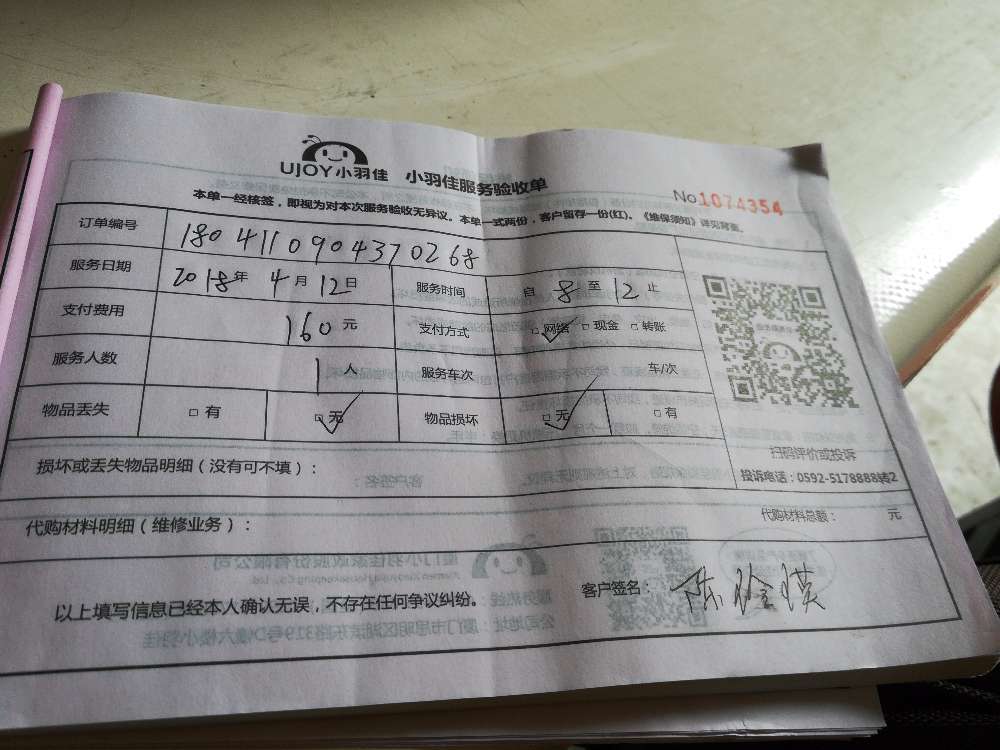 UJOY小羽佳 小羽佳服务验收单
No 1074354
本单一经核签，即视为对本次服务验收无异议。本单一式两份，客户留存一份(红)。《维保须知》详见背面。
订单编号 1804110904370268
服务日期 2018年 4月 12日 服务时间 自 8 至 12 止
支付费用 160 元 支付方式 □网络 □现金 □转账
服务人数 1 人 服务车次 车/次
物品丢失 □有 □无 物品损坏 □无 □有
扫码评价或投诉
损坏或丢失物品明细（没有可不填）：
投诉电话：0592-5178888转2
代购材料明细（维修业务）：
代购材料总额： 元
以上填写信息已经本人确认无误，不存在任何争议纠纷。
客户签名： 陈